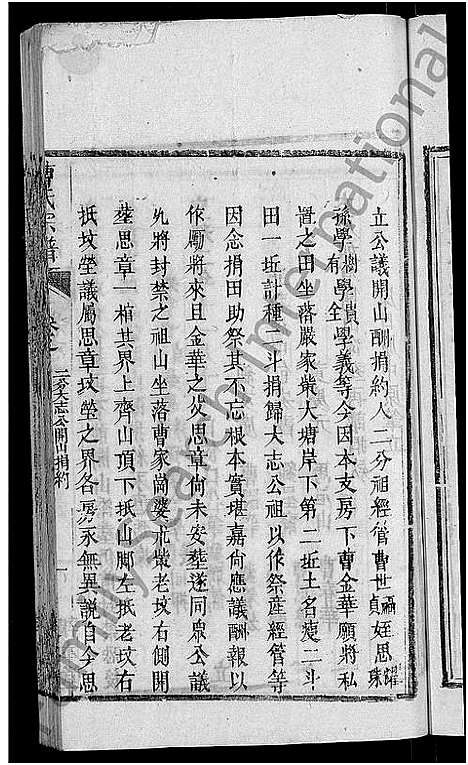 立公議開山酬捐約人二分祖經管曹世禎貞姪思耀
孫學樹有學賢全學義等今因本支房下曹金華願將私
置之田坐落嚴家柴大塘岸下第二坵土名瘦二斗
田一坵計種二斗捐歸大志公祖以作祭産經管等
因念捐田助祭其不忘根本實堪嘉尙應議酬報以
作勵將來且金華之父思章尙未安塟遂同衆公議
允將封禁之祖山坐落曹家崗婆柴老坟右側開
塟思章一棺其界上齊山頂下抵山脚左抵老坟右
抵坟塋議屬思章坟塋之界各房永無異說自今思
曹氏宗譜
卷之
二分大志公開山捐約
Familysearch International